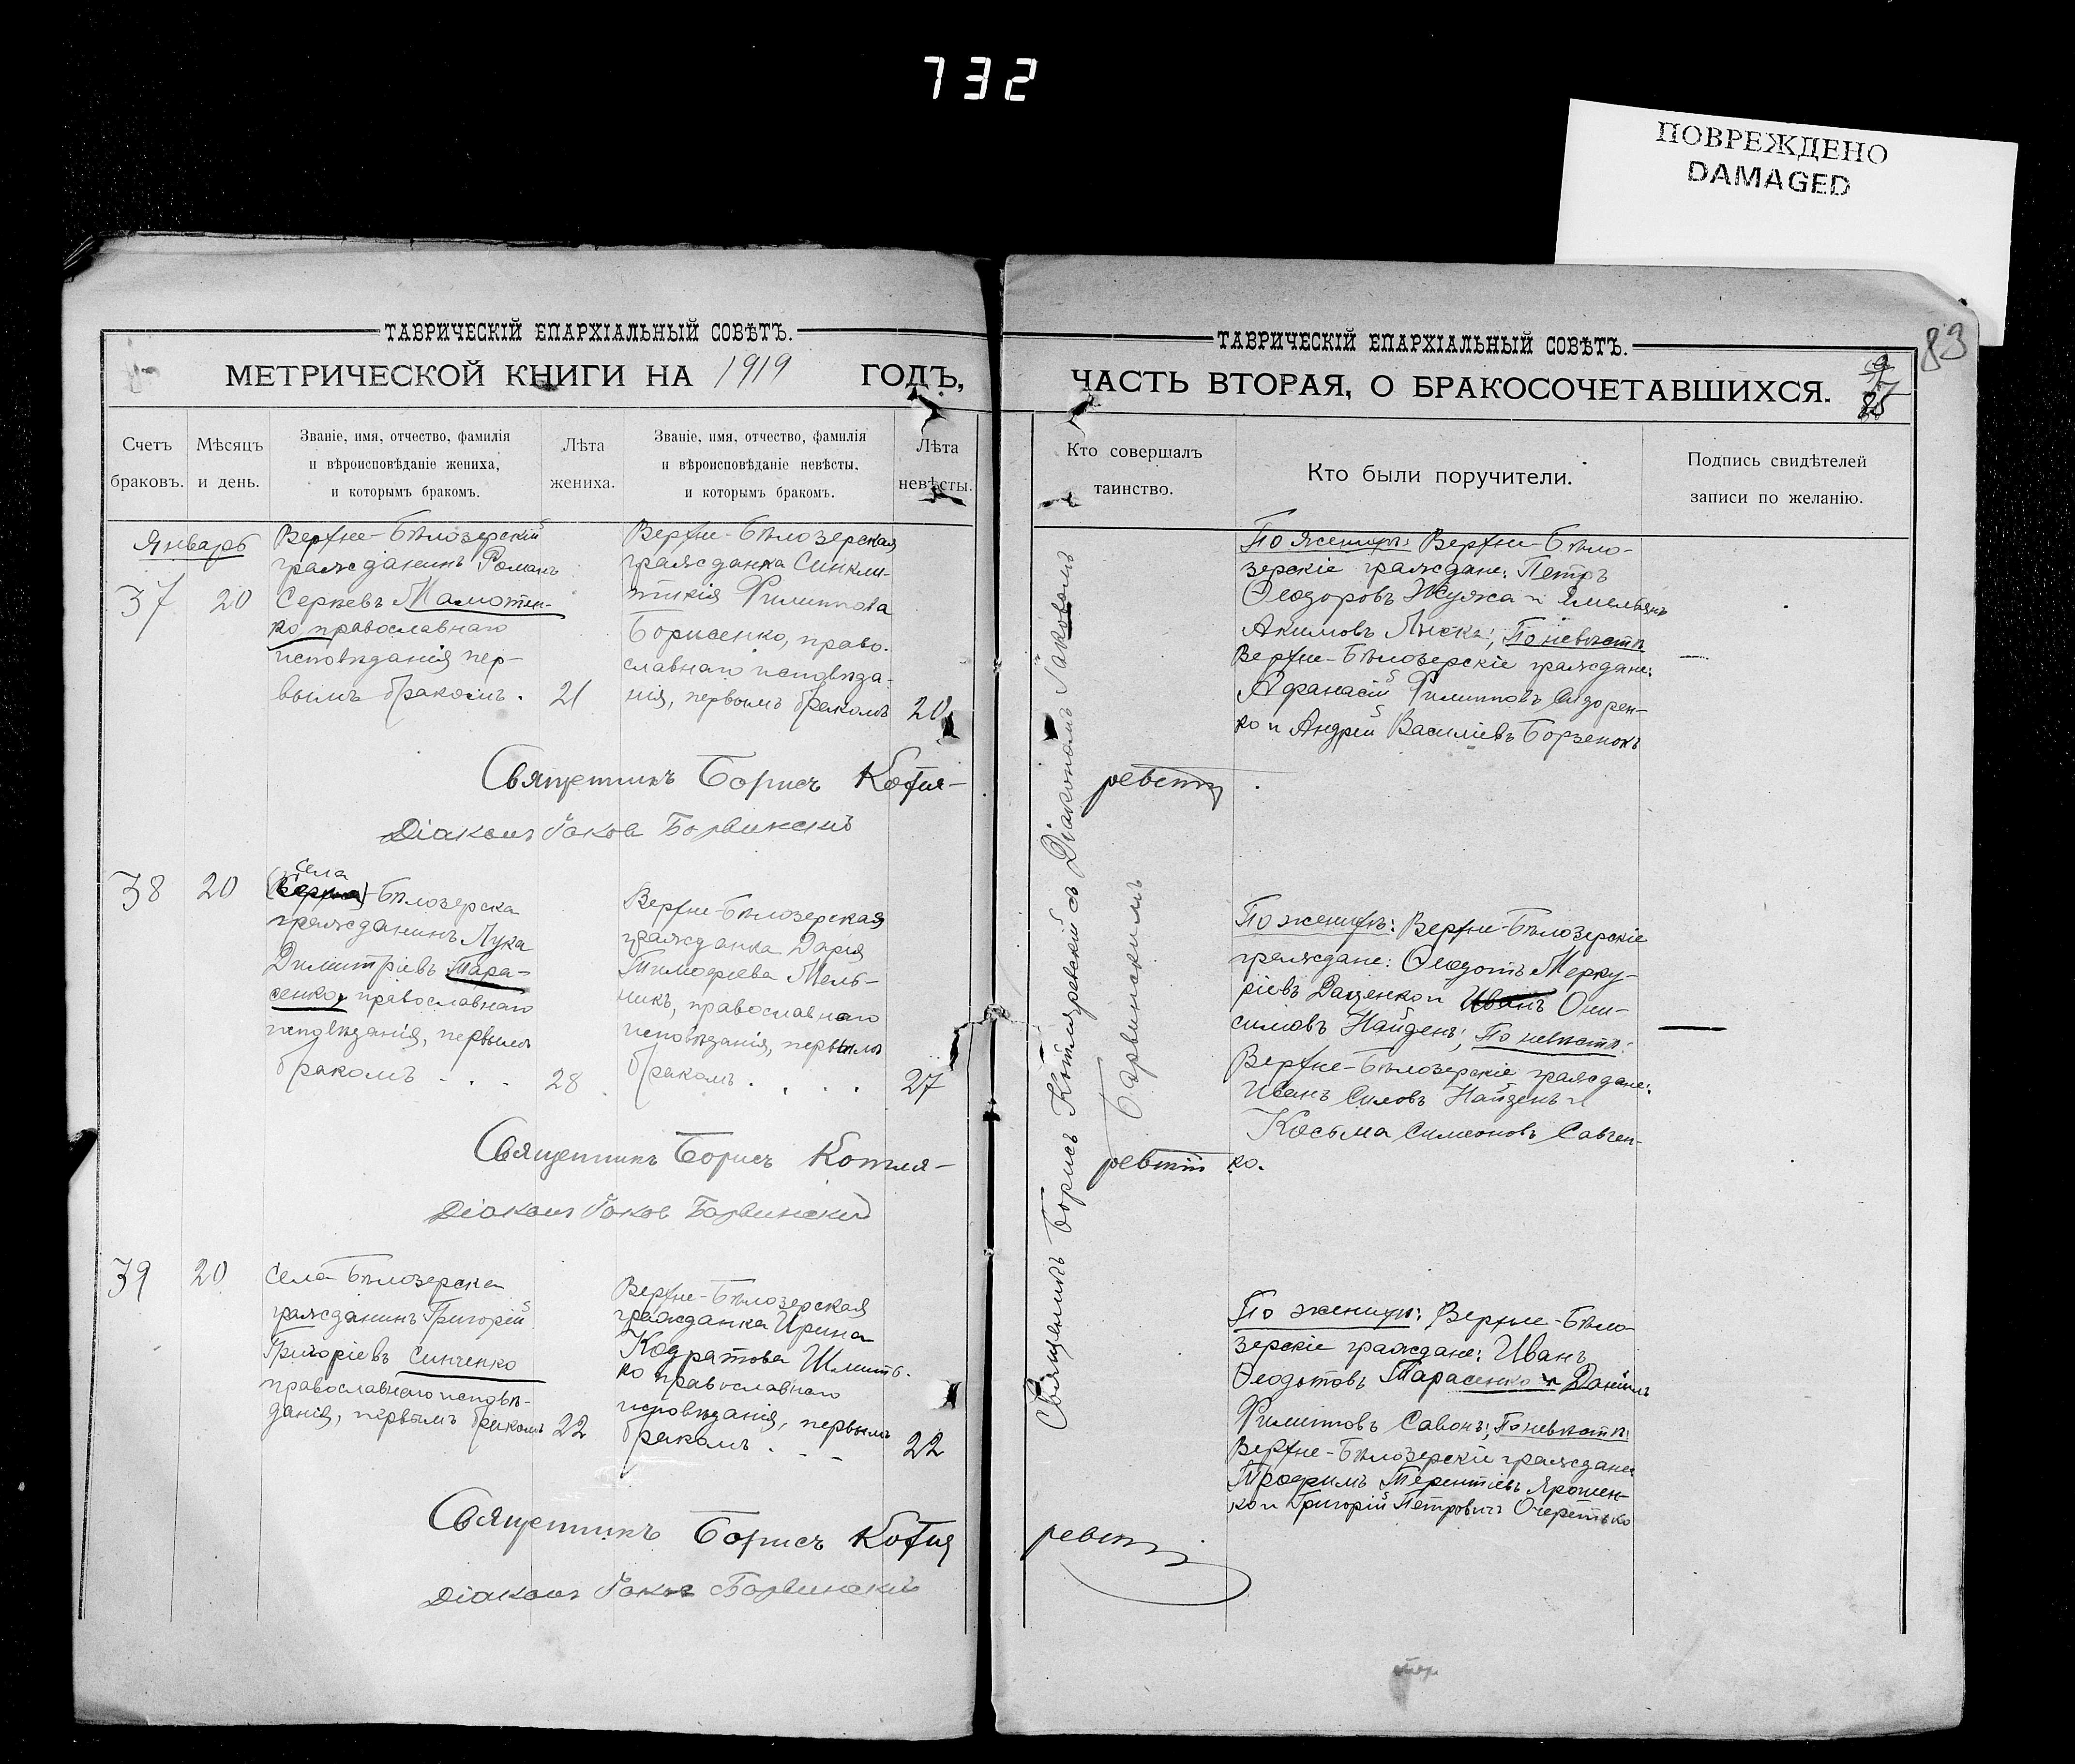 732
ПОВРЕЖДЕНО
DAMAGED
ТАВРИЧЕСКІЙ ЕПАРХІАЛЬНЫЙ СОВѢТЪ.
МЕТРИЧЕСКОЙ КНИГИ НА 1919 ГОДЪ,
Счетъ
браковъ.
Мѣсяцъ
и день.
Званіе, имя, отчество, фамилія
и вѣроисповѣданіе жениха,
и которымъ бракомъ.
Лѣта
жениха.
Званіе, имя, отчество, фамилія
и вѣроисповѣданіе невѣсты,
и которымъ бракомъ.
Лѣта
невѣсты.
Январь
37
20
Верхне-Бѣлозерскій
гражданинъ Романъ
Сергѣевъ Мамотен-
ко православнаго
исповѣданія пер-
вымъ бракомъ.
21
Верхне-Бѣлозерская
гражданка Синкли-
тикія Филиппова
Борисенко, право-
славнаго исповѣда-
нія, первымъ бракомъ
20
Священникъ Борисъ Котля-
Діаконъ Іаковъ Барвинскій
38
20
села
Бѣлозерска
гражданинъ Лука
Димитріевъ Тара-
сенко, православнаго
исповѣданія, первымъ
бракомъ . . .
28
Верхне-Бѣлозерская
гражданка Дарія
Тимофеева Мель-
никъ, православнаго
исповѣданія, первымъ
бракомъ . . . .
27
Священникъ Борисъ Котля-
Діаконъ Іаковъ Барвинскій
39
20
Села Бѣлозерска
гражданинъ Григорій
Григоріевъ Синченко
православнаго исповѣ-
данія, первымъ бракомъ
22
Верхне-Бѣлозерская
гражданка Ирина
Кодратова Шмить-
ко православнаго
исповѣданія, первымъ
бракомъ . - -
22
Священникъ Борисъ Котля
Діаконъ Іаковъ Барвинскій
ТАВРИЧЕСКІЙ ЕПАРХІАЛЬНЫЙ СОВѢТЪ.
83
ЧАСТЬ ВТОРАЯ, О БРАКОСОЧЕТАВШИХСЯ.
85
Кто совершалъ
таинство.
Кто были поручители.
Подпись свидѣтелей
записи по желанію.
Священникъ Борисъ Котляревскій съ Діакономъ Іаковомъ
Барвинскимъ
По женихѣ: Верхне-Бѣло-
зерскіе граждане: Петръ
Ѳеодоровъ Жужа и Емельянъ
Акимовъ Лыска; По невѣстѣ
Верхне-Бѣлозерскіе граждане:
Афанасій Филипповъ Сидорен-
ко и Андрей Василіевъ Борзенокъ
ревскій
По женихѣ: Верхне-Бѣлозерскіе
граждане: Ѳеодотъ Мерку-
ріевъ Даценко и Иванъ Они-
симовъ Найденъ; По невѣстѣ:
Верхне-Бѣлозерскіе граждане:
Иванъ Силовъ Найденъ и
Косьма Симеоновъ Савчен-
ко.
ревскій
По женихѣ: Верхне-Бѣло-
зерскіе граждане: Иванъ
Ѳеодотовъ Тарасенко и Даніилъ
Филипповъ Савонъ; По невѣстѣ:
Верхне-Бѣлозерскіе граждане
Трофимъ Терентіевъ Ярошен-
ко и Григорій Петровичъ Очеретько
ревскій